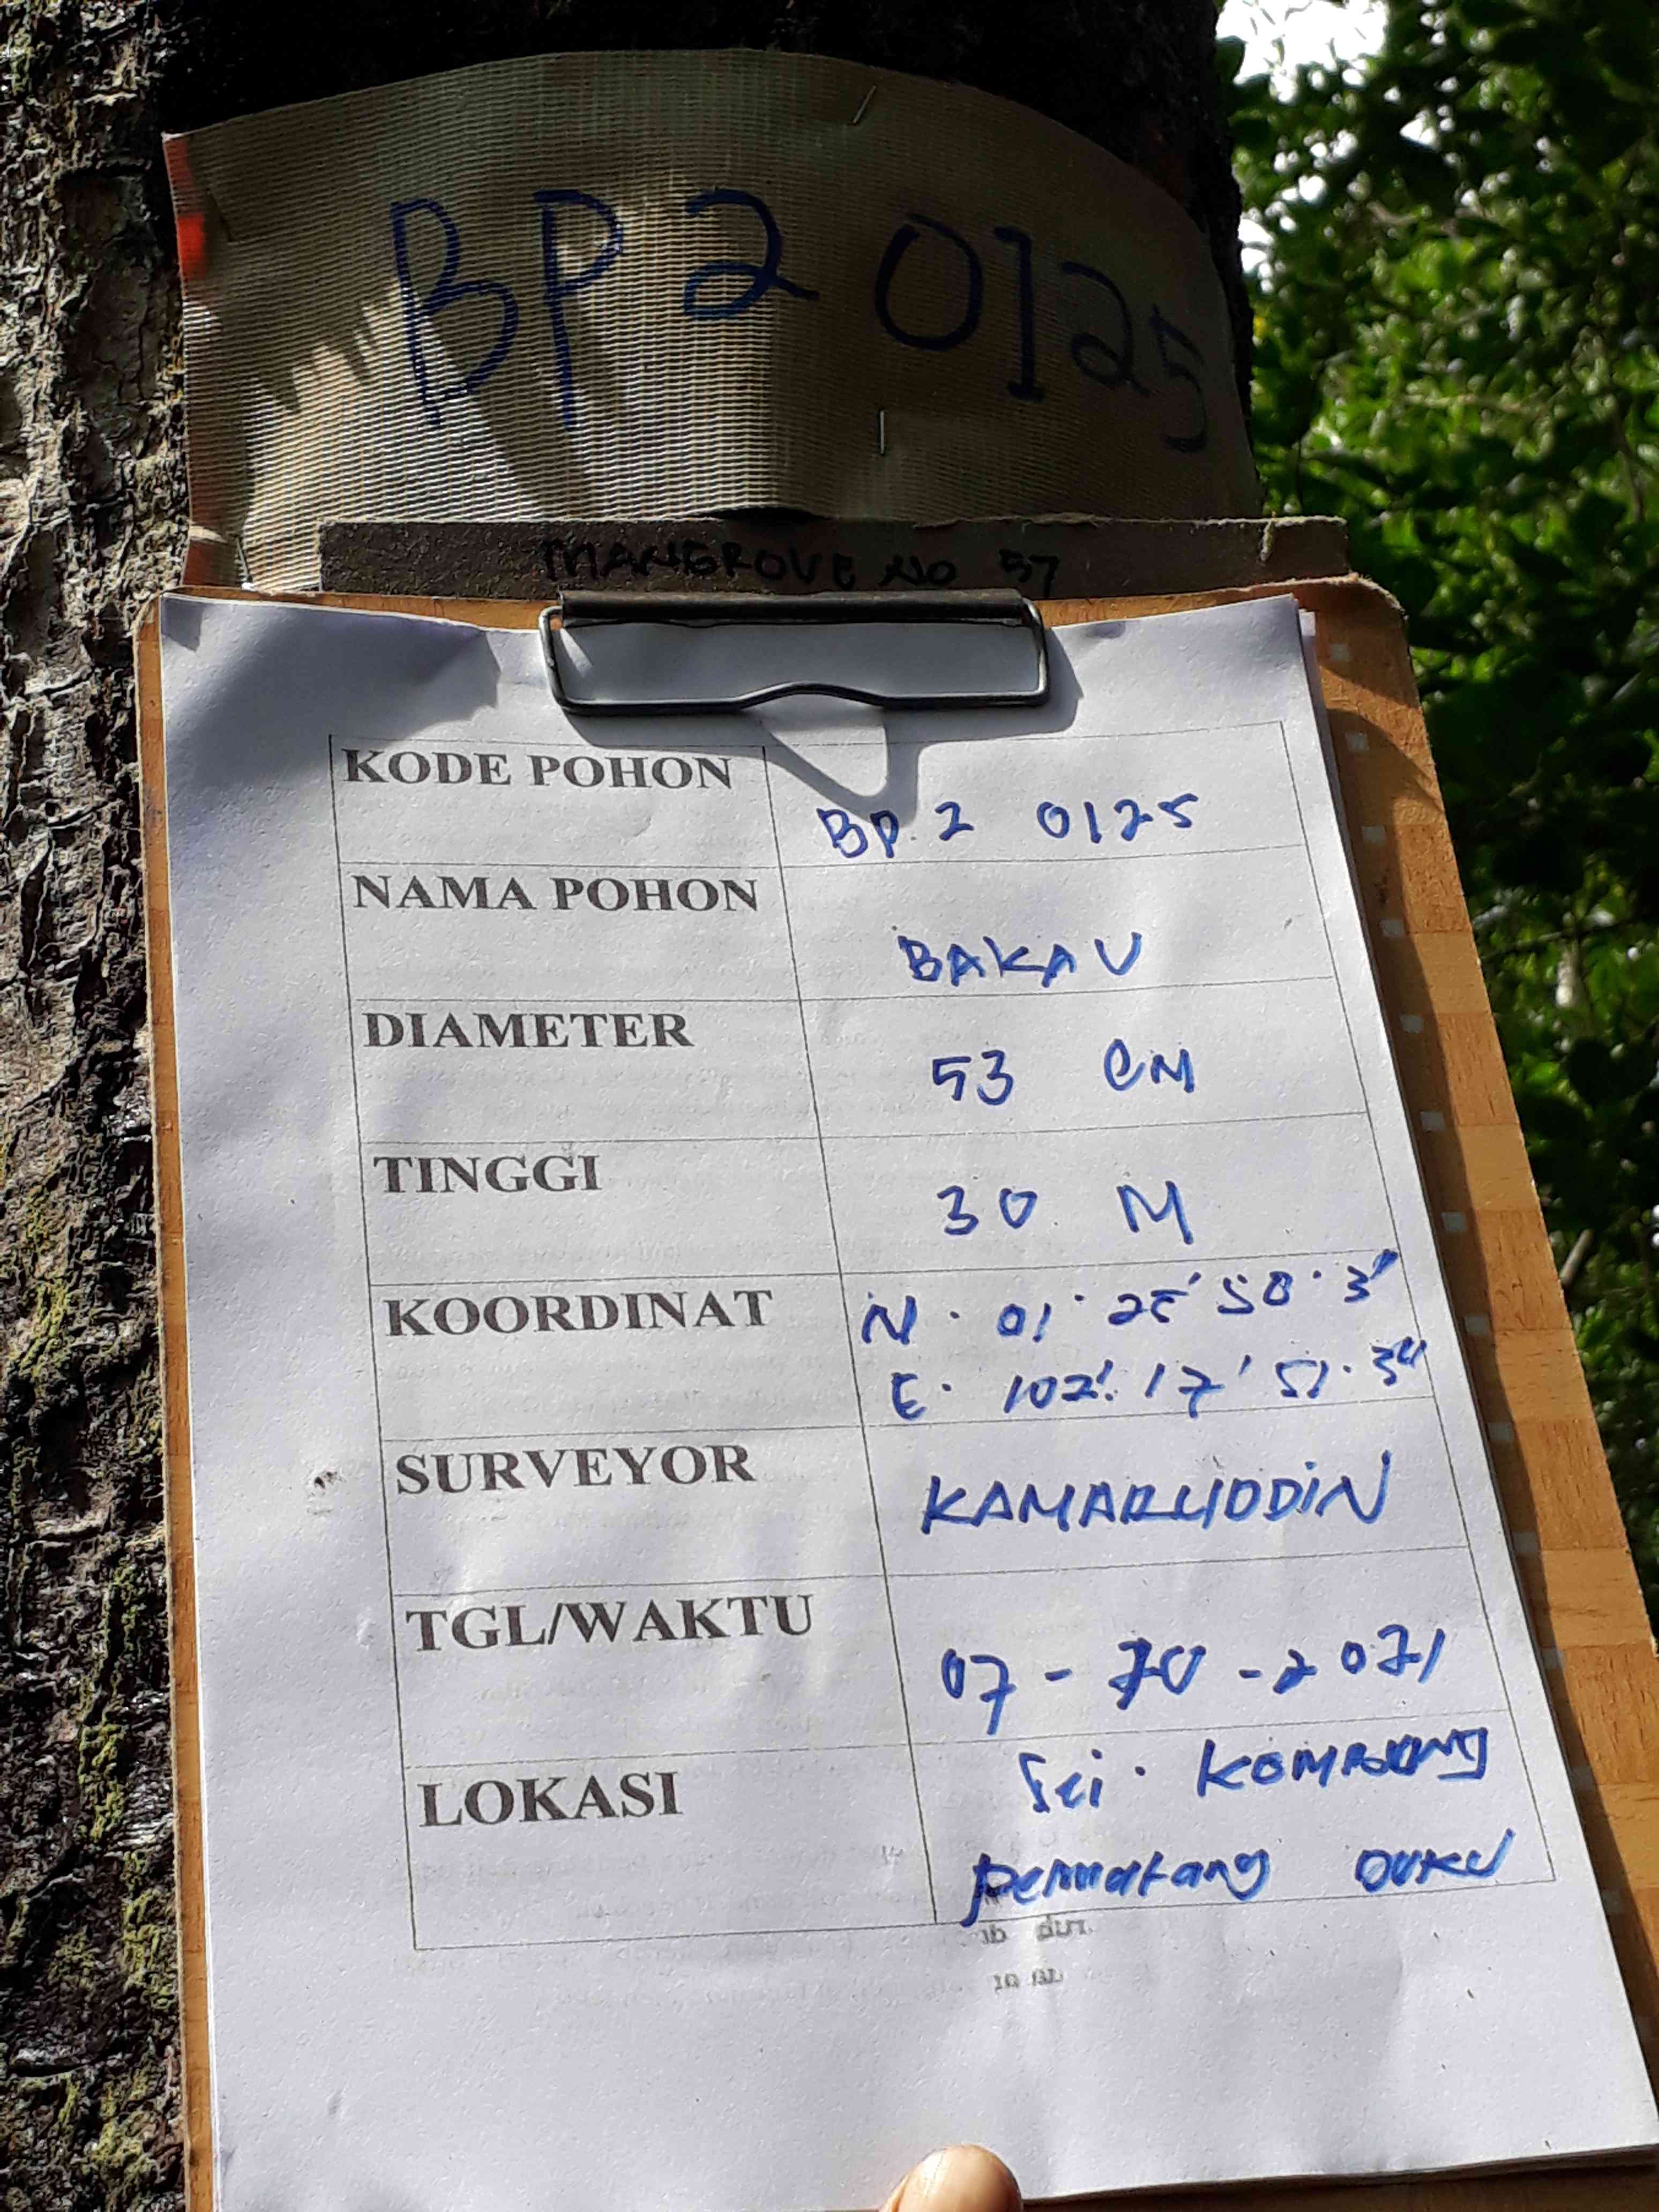 BP2 0125
MANGROVE NO 57
KODE POHON
BP. 2 0125
NAMA POHON
BAKAU
DIAMETER
53 CM
TINGGI
30 M
KOORDINAT
N. 01° 25' 50.3"
E. 102°. 17' 51.3"
SURVEYOR
KAMARUDDIN
TGL/WAKTU
07 - 10 - 2021
LOKASI
Sei. KEMBUNG
Pematang DUKU